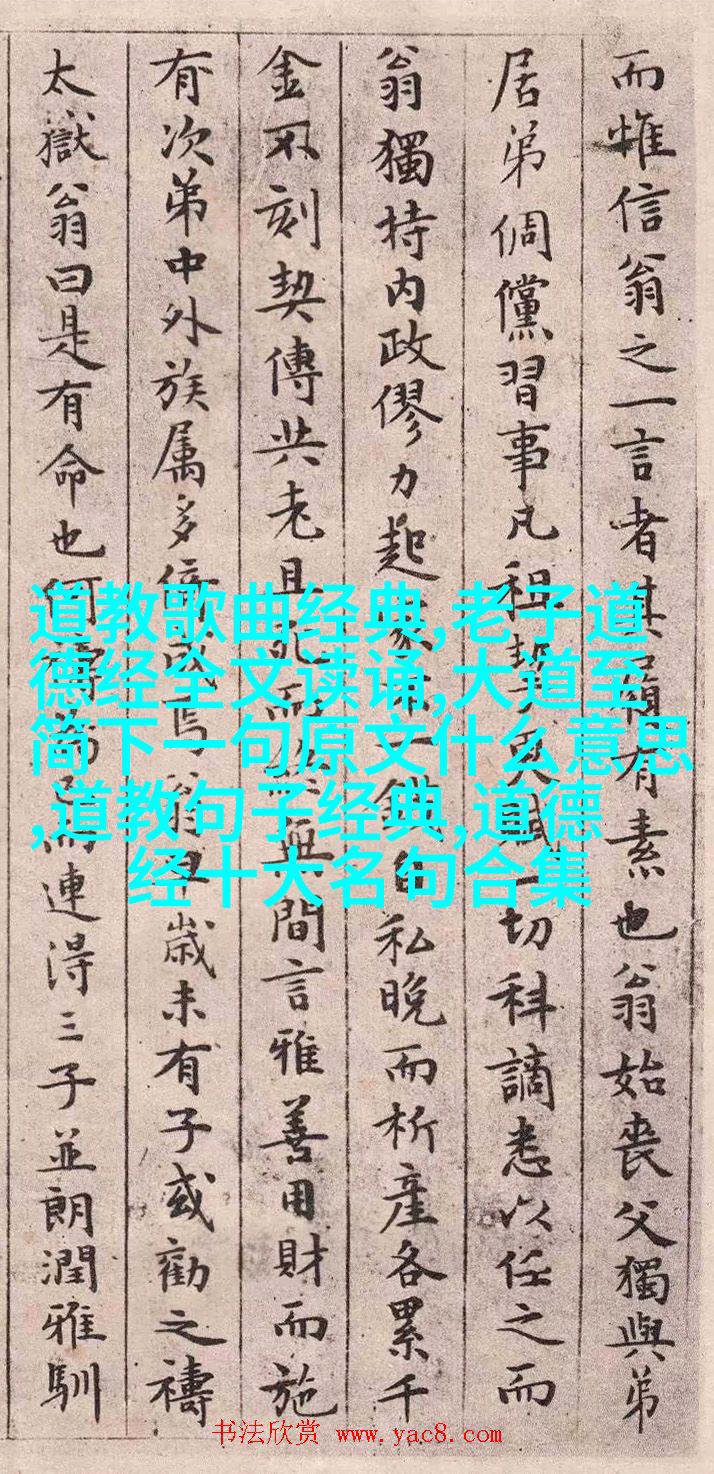 而惟信翁之一言者其
有素也翁始喪父獨與弟
居弟倜儻習事凡租契
賦一切科謫悉以任之而
翁獨持内政僇力起
私晚而析産各累千
金不刻契傳共老且死而
無間言雅善用財而施
有次弟中外族属多
焉翁甲歲未有子或勸之禱
太嶽翁曰是有命也何禱
連得三子並朗潤雅馴
道教歌曲经典,老子道
德经全文读诵,大道至
简下一句原文什么意思
,道教句子经典,道德
经十大名句合集
书法欣赏 www.yac8.com